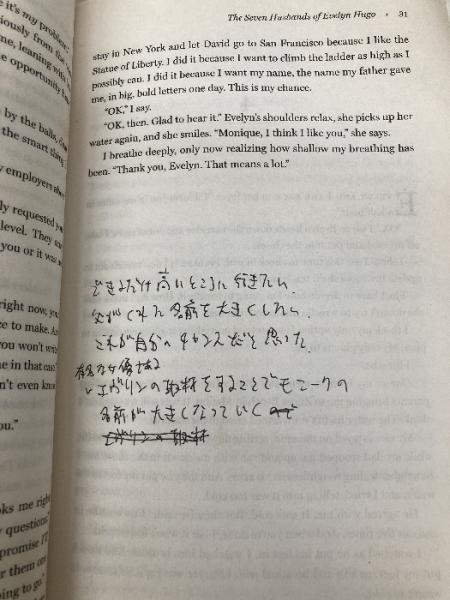 it's my problem
iously from the
me, leaning
e opportunity
by the balls,
the smart thing
y employers
ly requested
level. They
you or it was
right now, you
ce to make. A
you won't
me in that cas
n't even know
ou."
oks me righ
questions
promise I'l
r them
ing to go
The Seven Husbands of Evelyn Hugo • 31
stay in New York and let David go to San Francisco because I like the
Statue of Liberty. I did it because I want to climb the ladder as high as I
possibly can. I did it because I want my name, the name my father gave
me, in big, bold letters one day. This is my chance.
"OK," I say.
"OK, then. Glad to hear it." Evelyn's shoulders relax, she picks up her
water again, and she smiles. "Monique, I think I like you," she says.
I breathe deeply, only now realizing how shallow my breathing has
been. "Thank you, Evelyn. That means a lot."
できるだけ高いところに行きたい
父がくれた名前を大きくしたい
これが自分へのチャンスだと思った
有名な女優である
エヴリンの取材をすることでモニークの
名前が大きくなっていく